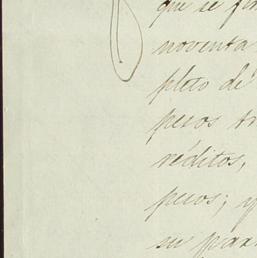 que se fir
noventa
pleto de
pesos tr
réditos,
pesos; y
su par